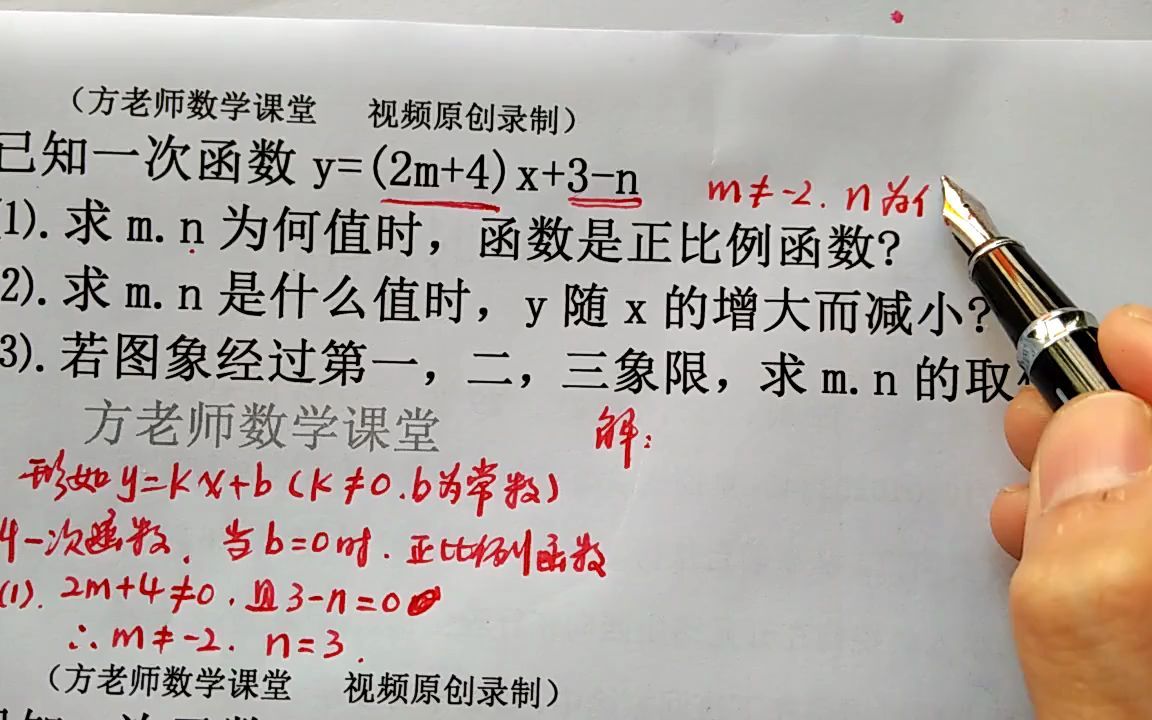 （方老师数学课堂 视频原创录制）
已知一次函数 y=(2m+4)x+3-n
m≠-2. n为
(1).求 m.n 为何值时，函数是正比例函数?
2).求 m.n 是什么值时，y 随 x 的增大而减小?
3).若图象经过第一，二，三象限，求 m.n 的取
方老师数学课堂
解：
形如 y=kx+b（k≠0.b为常数）
一次函数. 当b=0时. 正比例函数
(1). 2m+4≠0. 且3-n=0
∴m≠-2. n=3.
（方老师数学课堂 视频原创录制）